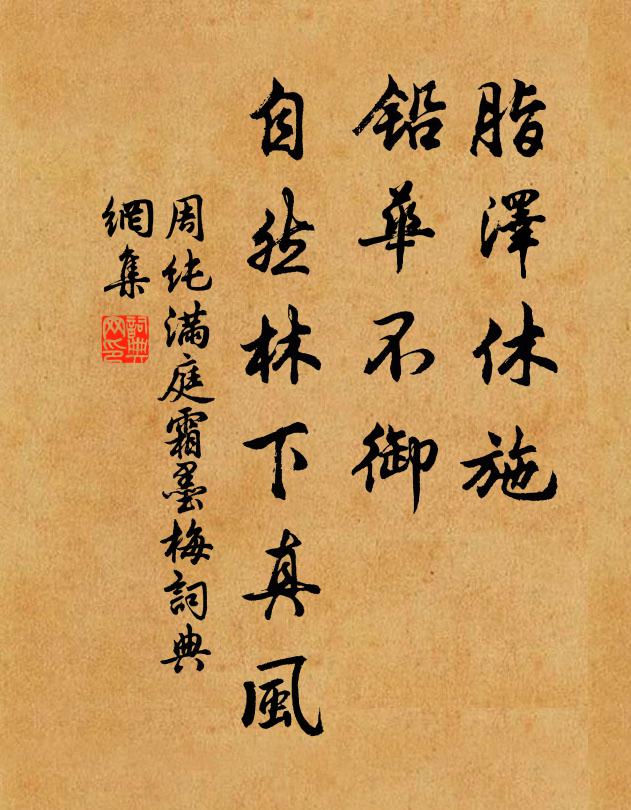 脂澤休施
鉛華不御
自然林下真風
周純滿庭霜墨梅詞典
網集
詞典
网印